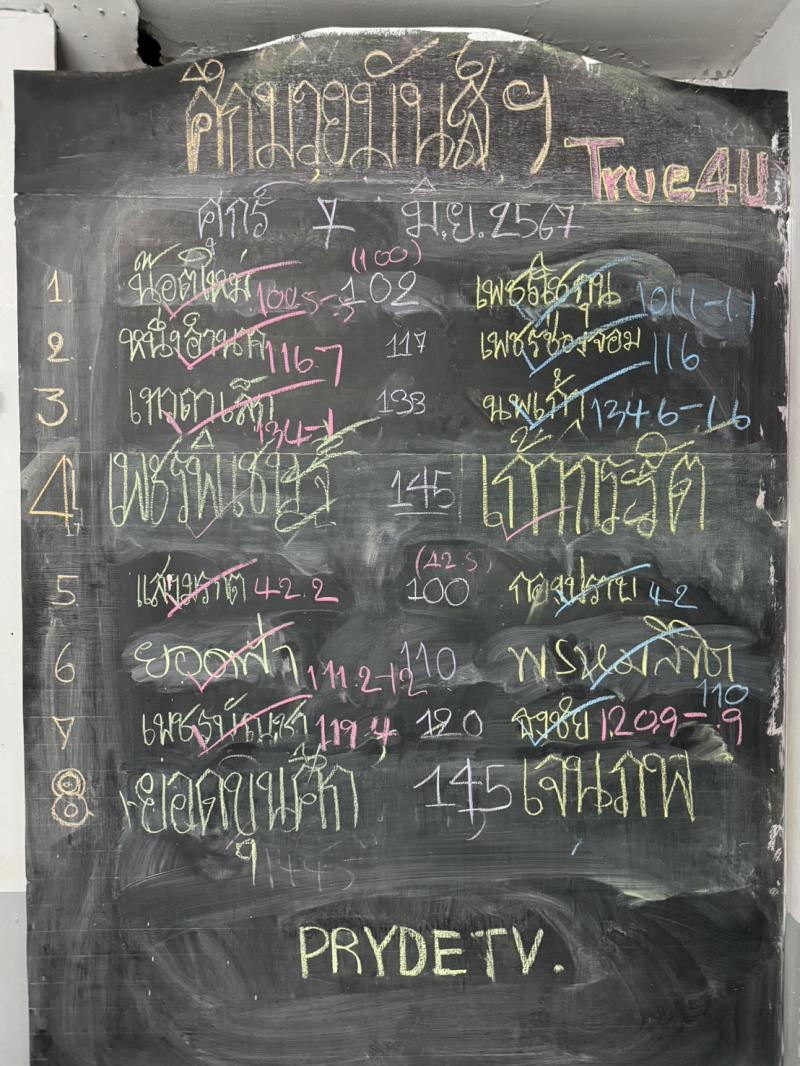 ศึกมวยมันส์ฯ
True4U
ศุกร์ 7 มิ.ย. 2567
(100)
1. น็อตใหม่ 100.5-.5 102 101.1-1.1
2. หนึ่งอำนาจ 116.7 117 เพชรช่องจอม 116
3 เทวดาเล็ก 134-1 133 นพเก้า 134.6-1.6
4 เพชรพิชาญ 145 เก้าการัต
(42.5)
5 แสนมราต 42.2 100 กองปราบ 42
6 ยอดฟ้า 111.2-1.2 110 พรหมลิขิต 110
7 เพชรบัญชา 119.4 120 ธงชัย 120.9-.9
8 ยอดขุนศึก 145 เจนภพ
144.5
PRYDETV.